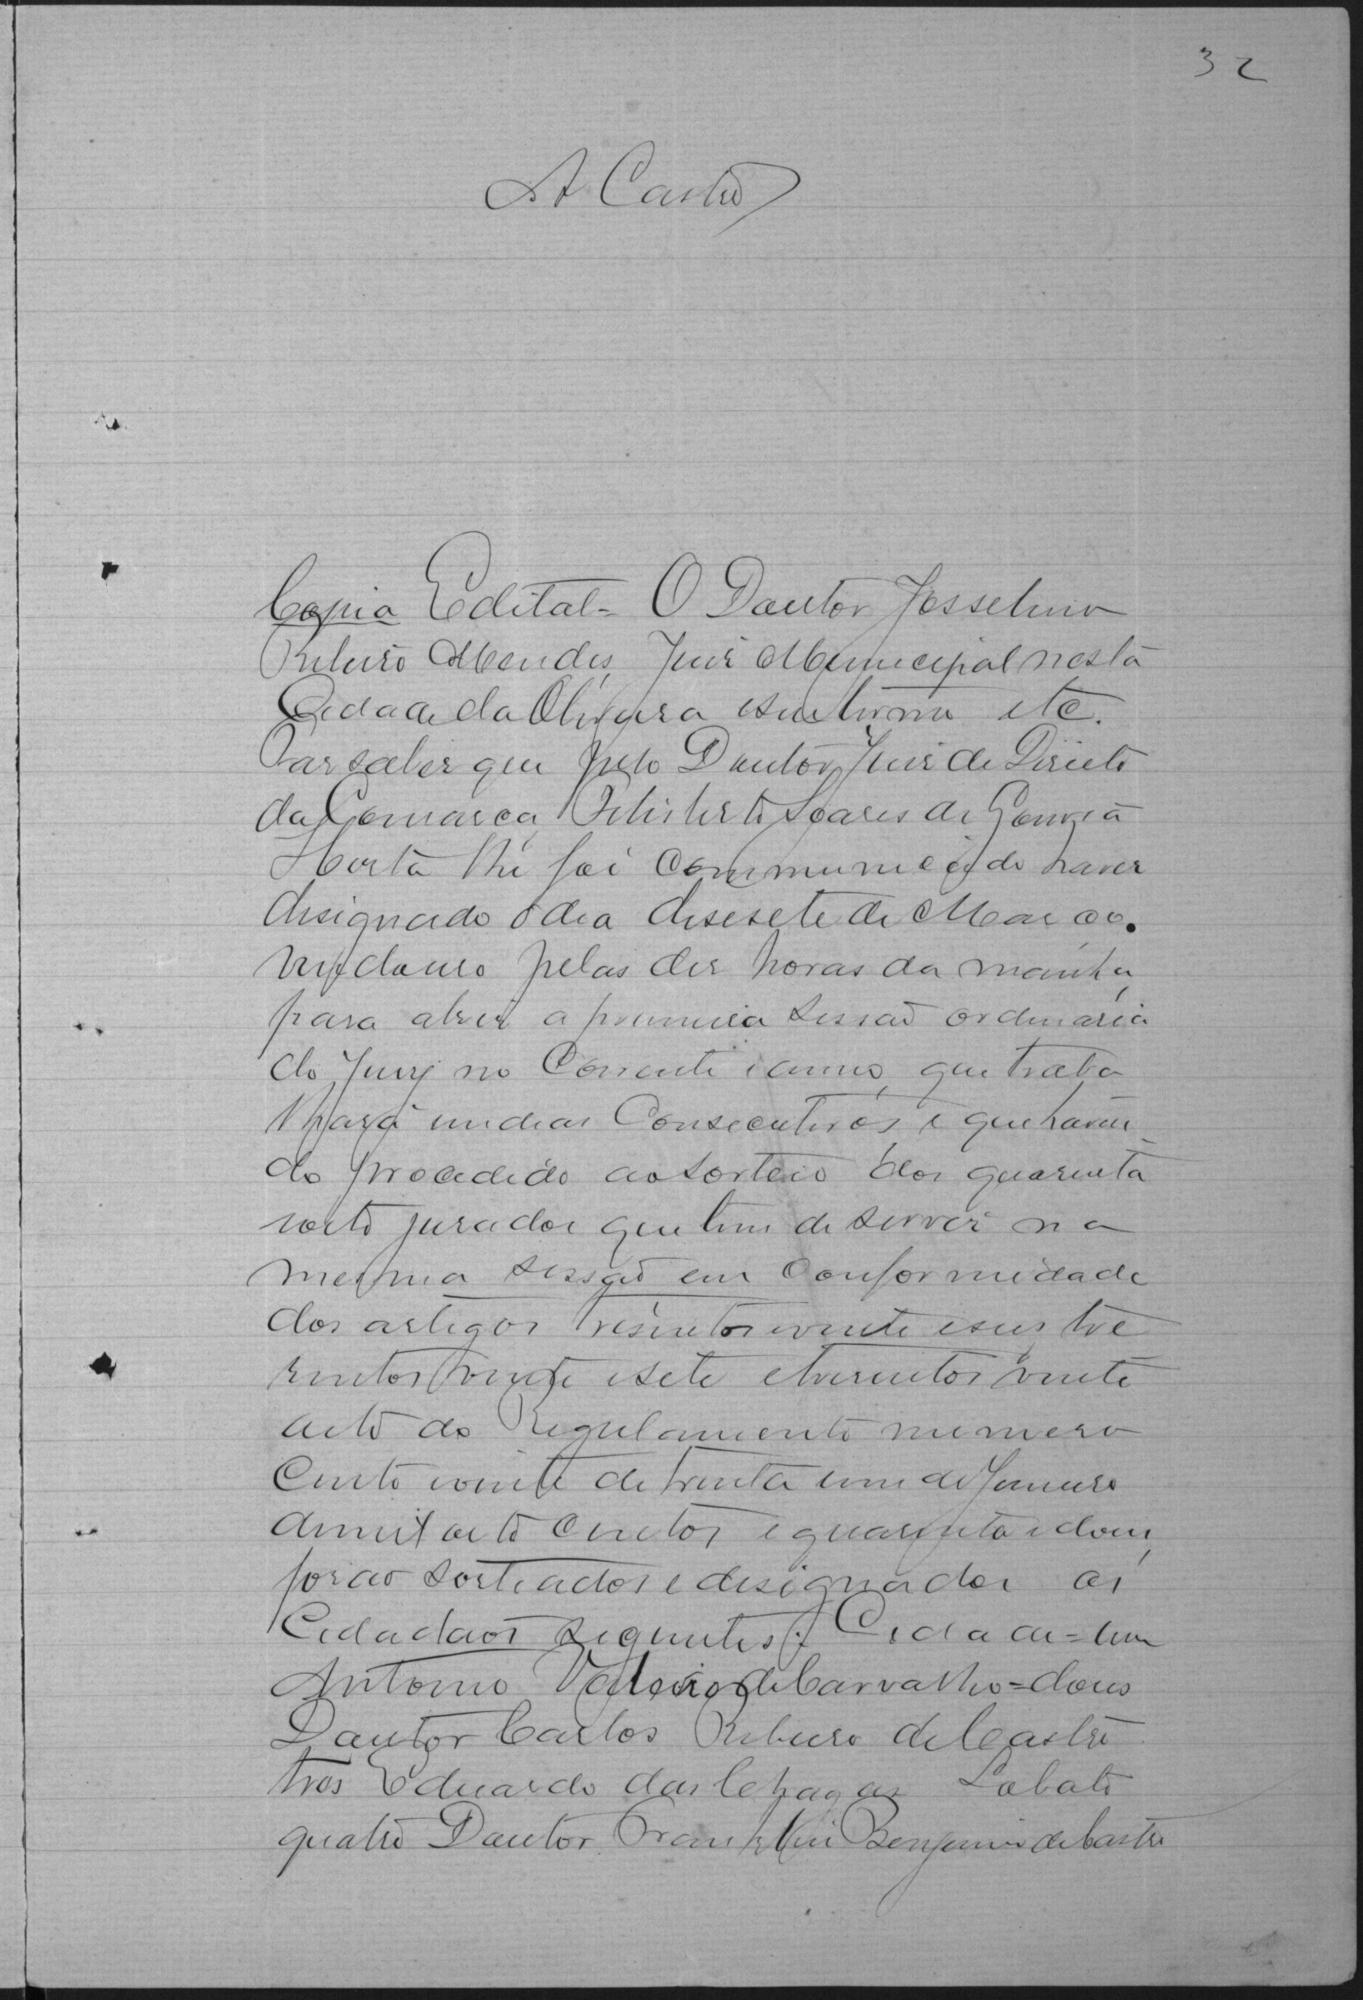 32
A Castro
Copia Edital - O Doutor Josselino
Ribeiro Mendes, Juiz Municipal nesta
Cidade da Oliveira e seu termo etc.
Faz saber que pelo Doutor Juiz de Direito
da Comarca, Feliberto Soares de Gouvea
Horta lhe foi communicado haver
designado o dia desesete de Março.
vindouro pelas des horas da manhã,
para abrir a primeira sessão ordinaria
do Jury no corrente anno, que traba
lhará em dias consecutivos, e que haven
do procedido ao sorteio dos quarenta
oito jurados que tem de servir na
mesma sessão em conformidade
dos artigos tresentos vinte e seis tre
sentos vinte e sete e tresentos vinte
oito do Regulamento numero
cento vinte de trinta um de Janeiro
de mil oito centos e quarenta e dous,
forão sorteados e designados os
Cidadãos seguintes: Cidade = um
Antonio Valerio de Carvalho = dous
Doutor Carlos Ribeiro de Castro
tres Eduardo das Chagas Lobato
quatro Doutor Franklin Benjamin de Castro